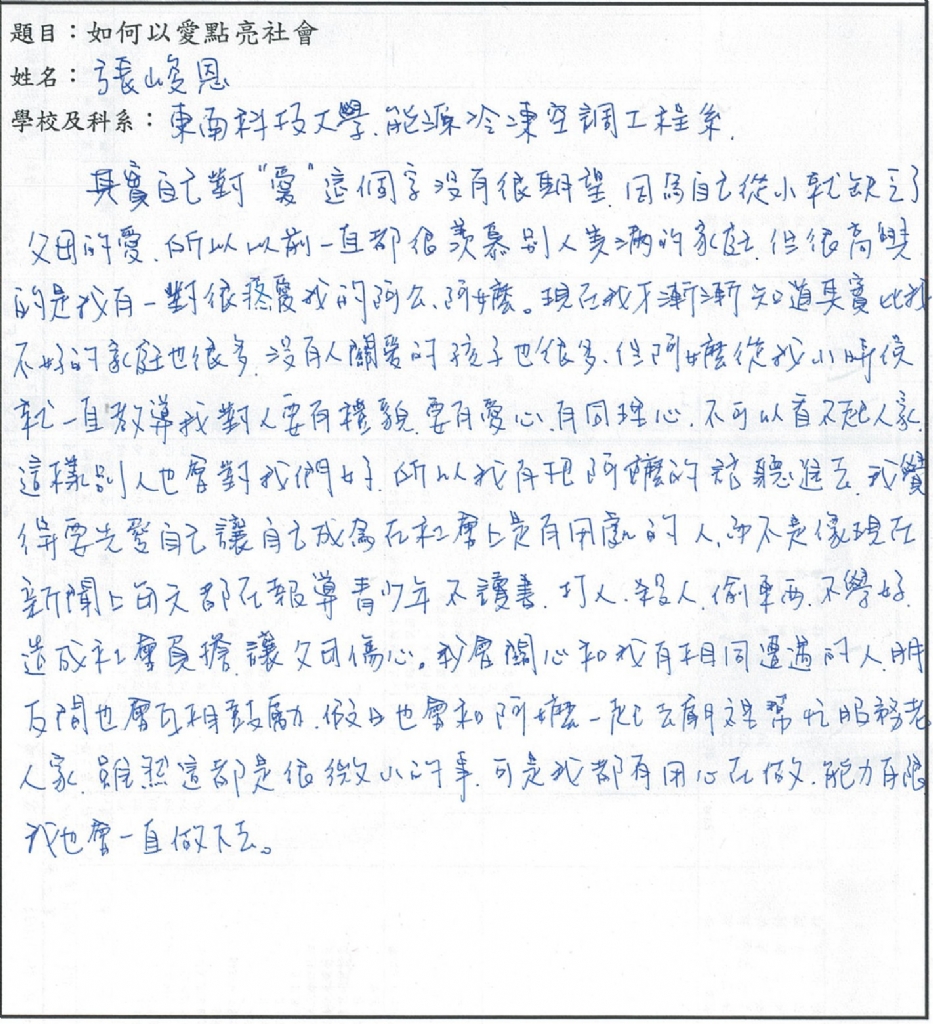 題目：如何以愛點亮社會
姓名：張峻恩
學校及科系：東南科技大學.能源冷凍空調工程系.
其實自己對“愛”這個字沒有很期望.因為自己從小就缺乏了
父母的愛.所以以前一直都很羨慕別人美滿的家庭.但很高興
的是我有一對很疼愛我的阿公.阿嬤。現在我才漸漸知道其實比我
不好的家庭也很多.沒有人關愛的孩子也很多.但阿嬤從我小時侯
就一直教導我對人要有禮貌.要有愛心.有同理心.不可以看不起人家.
這樣別人也會對我們好.所以我有把阿嬤的話聽進去.我覺
得要先愛自己讓自己成為在社會上是有用處的人.而不是像現在
新聞上每天都在報導青少年不讀書.打人.殺人.偷東西.不學好.
造成社會負擔.讓父母傷心。我會關心和我有相同遭遇的人.朋
友間也會互相鼓勵.假日也會和阿嬤一起去廟裡幫忙服務老
人家.雖然這都是很微小的事.可是我都有用心在做.能力有限
我也會一直做下去。